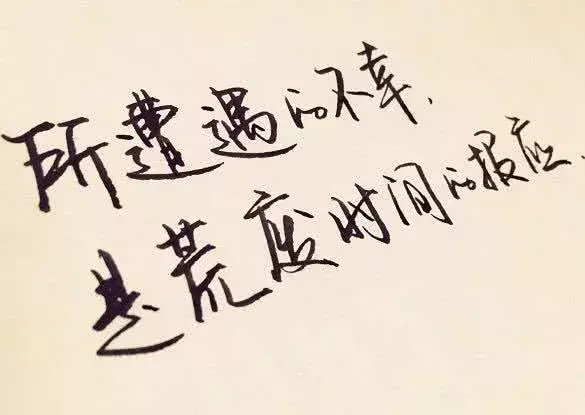 所遭遇的不幸.
是荒废时间的报应.